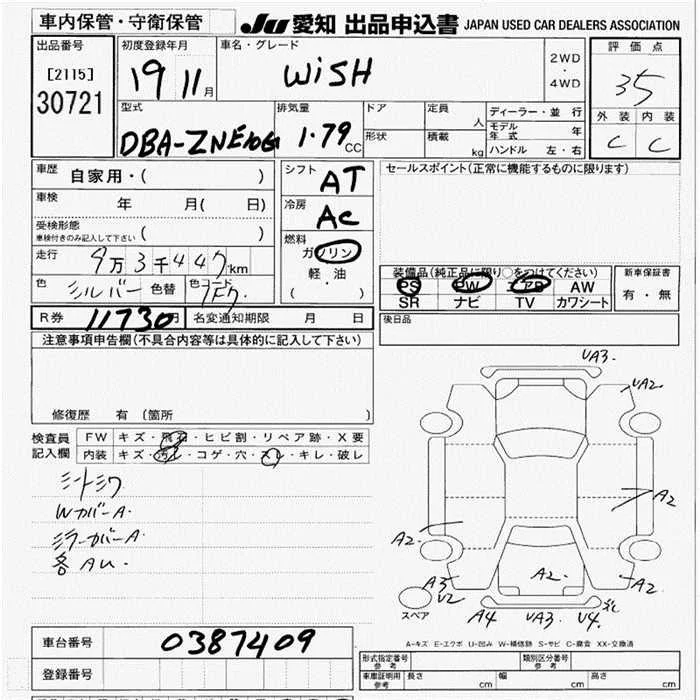 車内保管・守衛保管
JU 愛知 出品申込書 JAPAN USED CAR DEALERS ASSOCIATION
出品番号
[2115]
30721
初度登録年月
19 11月
車名・グレード
WiSH
2WD
・
4WD
評価点
35
外装 内装
C C
型式
DBA-ZNE10G
排気量
1.79cc
ドア
形状
定員
人
積載
kg
ディーラー・並行
モデル年式 年
ハンドル 左・右
車歴
自家用・( )
車検
年 月( 日)
受検形態
車検付きのみ記入して下さい ( )
走行
9万3千447km
色
シルバー 色替
色コード
1F7
シフト
AT
冷房
AC
燃料
ガソリン
・
軽・油
( )
セールスポイント(正常に機能するものに限ります)
装備品(純正品に限り○をつけてください)
PS PW エアB AW
SR ナビ TV カワシート
新車保証書
有・無
R券 11730円 名変通知期限 月 日
後日品
注意事項申告欄(不具合内容等は具体的に記入して下さい)
修復歴 有(箇所 )
検査員
記入欄
FW キズ・飛石・ヒビ割・リペア跡・X要
内装 キズ・汚レ・コゲ・穴・スレ・キレ・破レ
シートシワ
WカバーA.
ミラーカバーA.
各AU.
UA3.
UA2
A2
A2.
A3
U2
A2.
A2
スペア
A4 UA3. U4.
A-キズ E-エクボ U-凹み W-補修跡 S-サビ C-腐食 XX-交換済
車台番号 0387409
登録番号
形式指定番号
参考
類別区分番号
参考
車庫証明用
参考
長さ cm 幅 cm 高さ cm